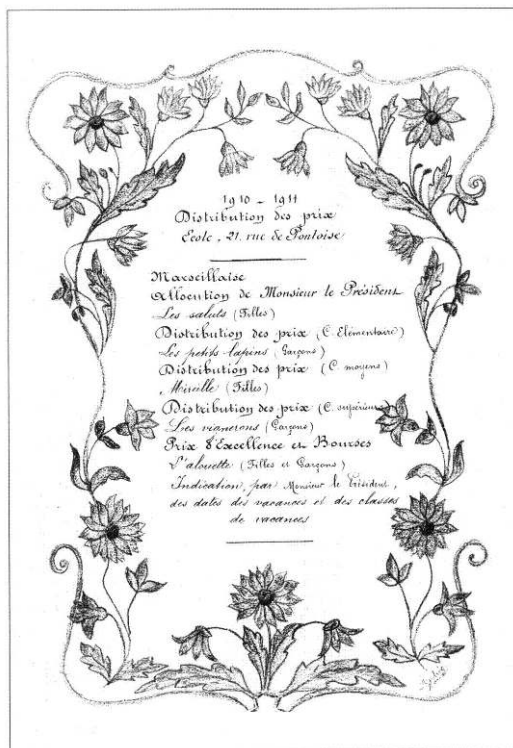 1910 - 1911
Distribution des prix
Ecole, 21, rue de Pontoise
Marseillaise
Allocution de Monsieur le Président
Les saluts (Filles)
Distribution des prix (C. Elémentaire)
Les petits lapins (Garçons)
Distribution des prix (C. moyens)
Mireille (Filles)
Distribution des prix (C. supérieur
Les vignerons (Garçons)
Prix d'Excellence et Bourses
L'alouette (Filles et Garçons)
Indication, par Monsieur le Président,
des dates des vacances et des classes
de vacances